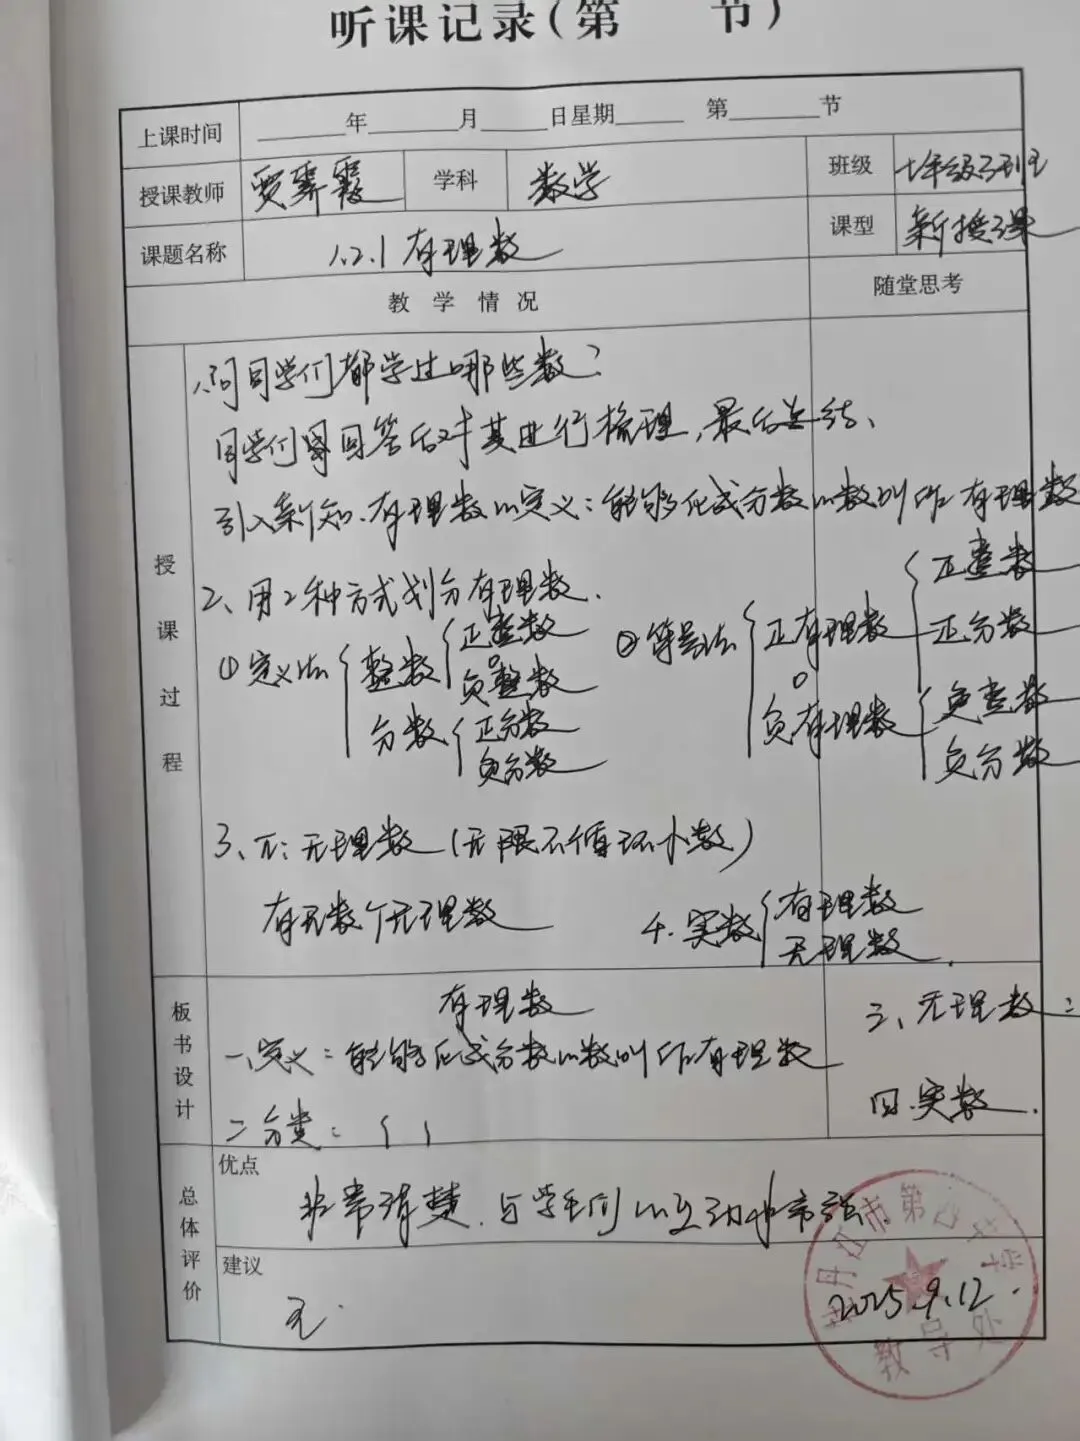 听课记录(第 节)
上课时间 ____年____月____日星期____ 第____节
授课教师 贾霁霞 学科 数学 班级 七年级3班
课题名称 1.2.1 有理数 课型 新授课
教 学 情 况 随堂思考
授课过程
1、问同学们都学过哪些数?
同学们回答后对其进行梳理,最后总结、
引入新知、有理数的定义:能够化成分数的数叫作有理数
2、用2种方式划分有理数.
①定义法 { 整数 { 正整数 负整数
分数 { 正分数 负分数
②符号法 { 正有理数 { 正整数 正分数
0
负有理数 { 负整数 负分数
3、π:无理数(无限不循环小数)
有无数个无理数
4.实数 { 有理数 无理数.
板书设计
有理数
一、定义:能够化成分数的数叫作有理数
二分类: { {
三、无理数:
四.实数.
总体评价
优点
非常清楚.与学生间的互动非常强.
建议
无.
2025.9.12.
牡丹江市第四中学
教导处